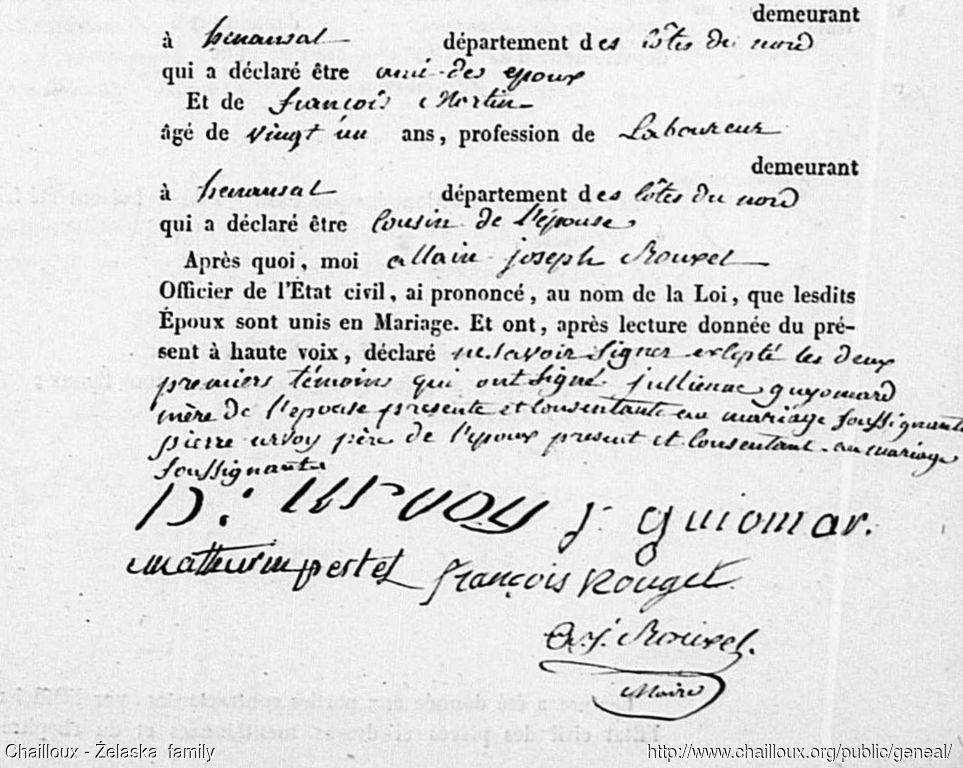 demeurant
à henansal département des côtes du nord
qui a déclaré être ami des epoux
Et de françois Mortin
âgé de vingt un ans, profession de Laboureur
demeurant
à henansal département des côtes du nord
qui a déclaré être Cousin de l'épouse
Après quoi, moi allain joseph Rouxel
Officier de l'État civil, ai prononcé, au nom de la Loi, que lesdits
Époux sont unis en Mariage. Et ont, après lecture donnée du pré-
sent à haute voix, déclaré ne savoir signer exlepté les deux
premiers témoins qui ont signé jullienne guyomard
mère de l'epouse presente et Consentante au mariage soussignante
pierre urvoy père de l'epoux present et Consentant au mariage
soussignant
P: urvoy J. guiomar.
mathurin pestel françois Rouget
a. j. Rouxel.
Maire
Chailloux - Żelaska family http://www.chailloux.org/public/geneal/